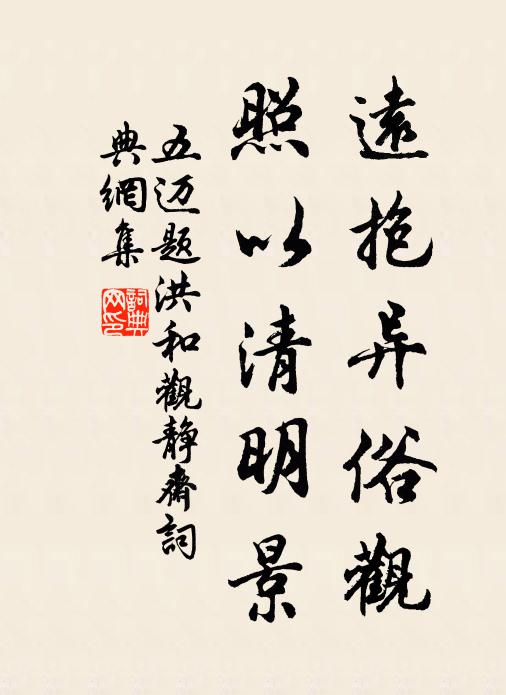 遠抱异俗觀
照以清明景
五迈题洪和觀静齋詞
典網集
詞典
网印